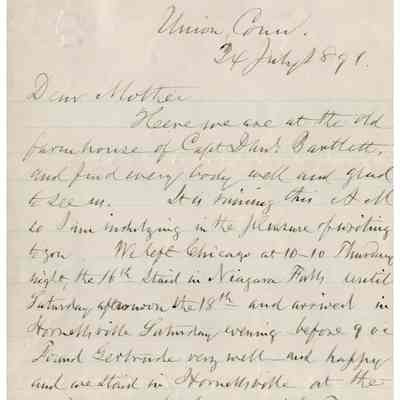 Union, Conn.
24 July 1891.
Dear Mother
Here we are at the old
farmhouse of Capt Danl. Bartlett,
and find every body well and glad
to see us. It is raining this A M
so I am indulging in the pleasure of writing
to you We left Chicago at 10-10 Thursday
night, the 16th Staid in Niagara Falls until
Saturday afternoon the 18th and arrived in
Hornellsville Saturday evening before 9 oc
Found Gertrude very well and happy
and we staid in Hornellsville at the